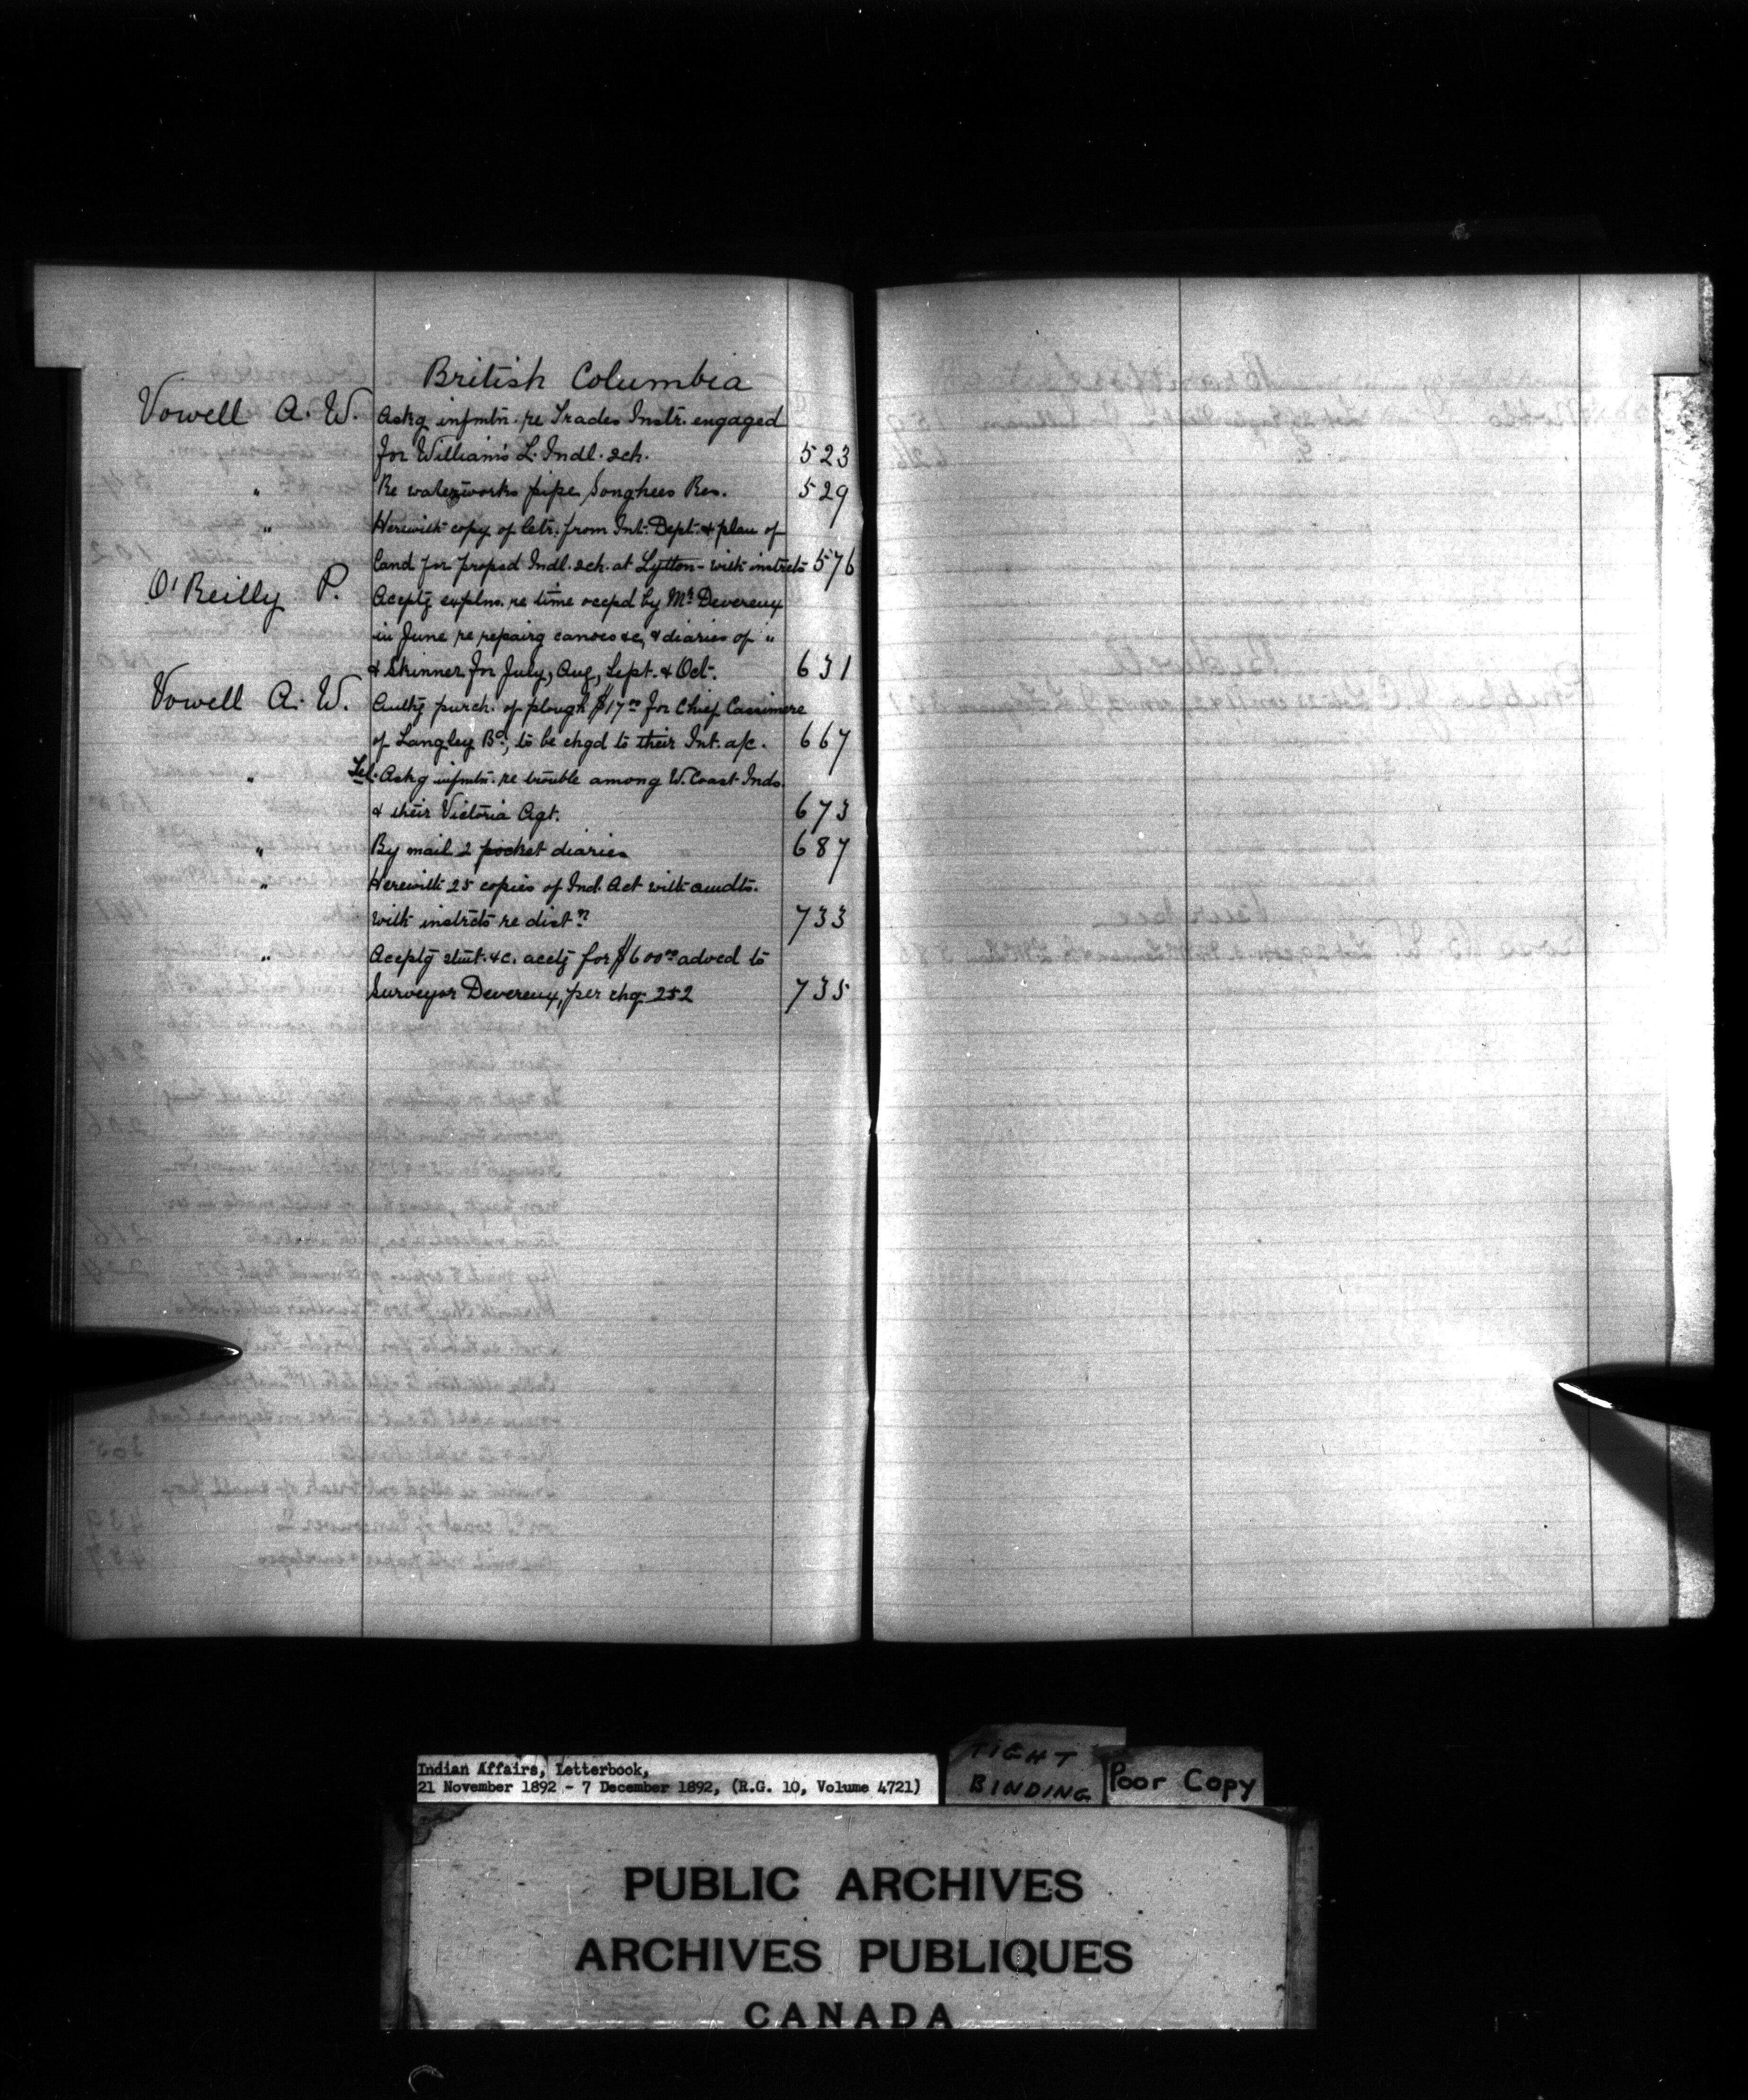 British Columbia
Vowell A. W. Askg infmtn. re Trades Instr. engaged
for William's L. Indl. sch. 523
" Re waterworks pipe, Songhees Res. 529
" Herewith copy of letr. from Int. Dept. & plan of
land for propsd Indl. sch. at Lytton - with instrcts 576
O'Reilly P. Aceptg explns. re time occpd by Mr. Devereux
in June re repairg canoes &c, & diaries of "
& Skinner for July, Aug, Sept. & Oct. 631
Vowell A. W. Authg purch. of plough $17.00 for Chief Cassimere
of Langley Bd, to be chgd to their Int. a/c. 667
" Tel. Askg infmtn. re trouble among W. Coast Inds.
& their Victoria Agt. 673
" By mail 2 pocket diaries 687
" Herewith 25 copies of Ind. Act with amdts.
with instrcts re distn 733
" Aceptg stmt. &c. acctg for $600.00 advcd to
Surveyor Devereux, per chq. 252 735
Indian Affairs, Letterbook,
21 November 1892 - 7 December 1892, (R.G. 10, Volume 4721)
TIGHT
BINDING
Poor Copy
PUBLIC ARCHIVES
ARCHIVES PUBLIQUES
CANADA